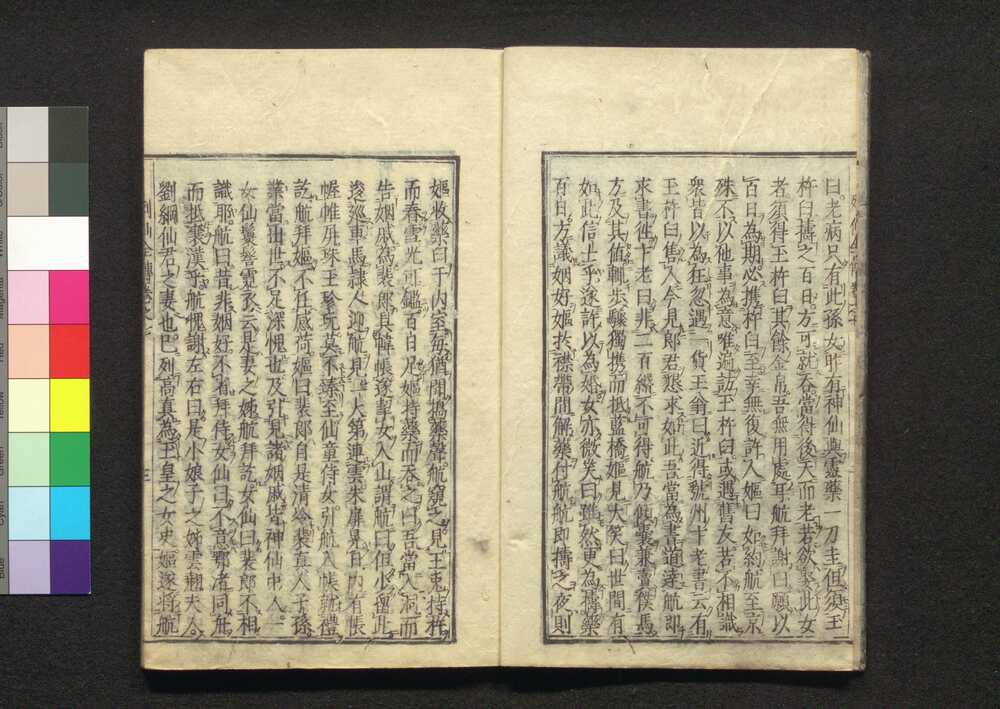 曰老病只有此孫女昨有神仙與靈藥一刀圭但須玉
杵臼擣之百日方可就吞當得後天而老若欲娶此女
者須得玉杵臼其餘金帛吾無用處耳航拜謝曰願以
百日為期必携杵臼至更無後許人嫗曰如約航至京
殊不以他事為意唯遍訪玉杵臼或遇舊友若不相識
衆皆以為狂忽遇一貨玉翁曰近得虢州卞老書云有
玉杵臼售人今見郎君懇求如此吾當為書道達航即
求書徃卞老曰非二百緡不可得航乃傾囊兼賣僕馬
方及其値輒步驟獨携而抵藍橋嫗見大笑曰世間有
如此信士乎遂許以為婚女亦微笑曰雖然更為擣藥
百日方議姻好嫗於襟帶間解藥付航航即擣之夜則
嫗收藥臼于內室每猶聞擣藥聲航窺之見玉兎持杵
而舂雪光可鑑百日足嫗持藥而吞之曰吾當入洞而
告姻戚為裴郎具幃帳遂挈女入山謂航曰但少留此
逡巡車馬隷人迎航見一大第連雲朱扉晃日內有帳
幄帷屏珠玉珍玩莫不臻至仙童侍女引航入帳就禮
訖航拜嫗不任感荷嫗曰裴郎自是清冷裴真人子孫
業當出世不足深愧也及引見諸姻戚皆神仙中人一
女仙鬟髻霓衣云是妻之姊航拜訖女仙曰裴郎不相
識耶航曰昔非姻好不省拜侍女仙曰不意鄂渚同舟
而抵襄漢乎航愧謝左右曰是小娘子之姊雲翹夫人
劉綱仙君之妻也已列高真為玉皇之女史嫗遂將航